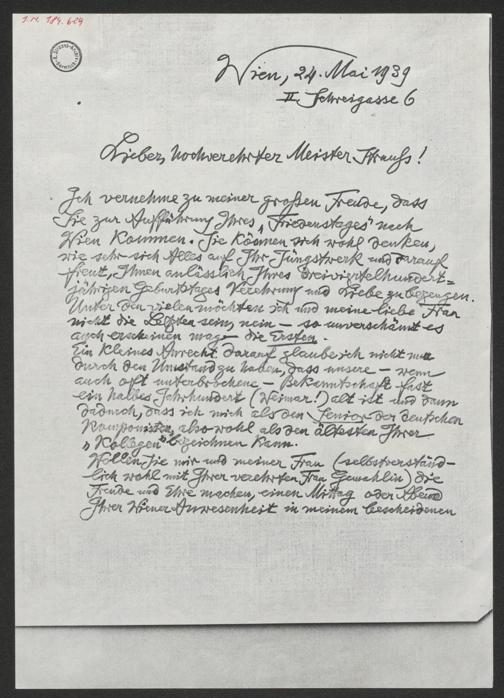 I.N. 184.624
Wien, 24. Mai 1939
II Schreigasse 6
Lieber, hochverehrter Meister Strauss!
Ich vernehme zu meiner großen Freude, dass
Sie zur Aufführung Ihres „Friedenstages" nach
Wien kommen. Sie können sich wohl denken,
wie sehr sich Alles auf Ihr Jüngstwerk und darauf
freut, Ihnen anlässlich Ihres dreiviertelhundert-
jährigen Geburtstages Verehrung und Liebe zu bezeugen.
Unter den vielen möchten ich und meine liebe Frau
nicht die Letzten sein, nein – so unverschämt es
auch erscheinen mag – die Ersten.
Ein kleines Anrecht darauf glaube ich nicht nur
durch den Umstand zu haben, dass unsere – wenn
auch oft unterbrochene – Bekanntschaft fast
ein halbes Jahrhundert (Weimar!) alt ist und dann
dadurch, dass ich mich als den Senior der deutschen
Komponisten, also wohl als den ältesten Ihrer
„Kollegen" bezeichnen kann.
Wollen Sie mir und meiner Frau (selbstverständ-
lich wohl mit Ihrer verehrten Frau Gemahlin) die
Freude und Ehre machen, einen Mittag oder Abend
Ihrer Wiener Anwesenheit in meinem bescheidenen